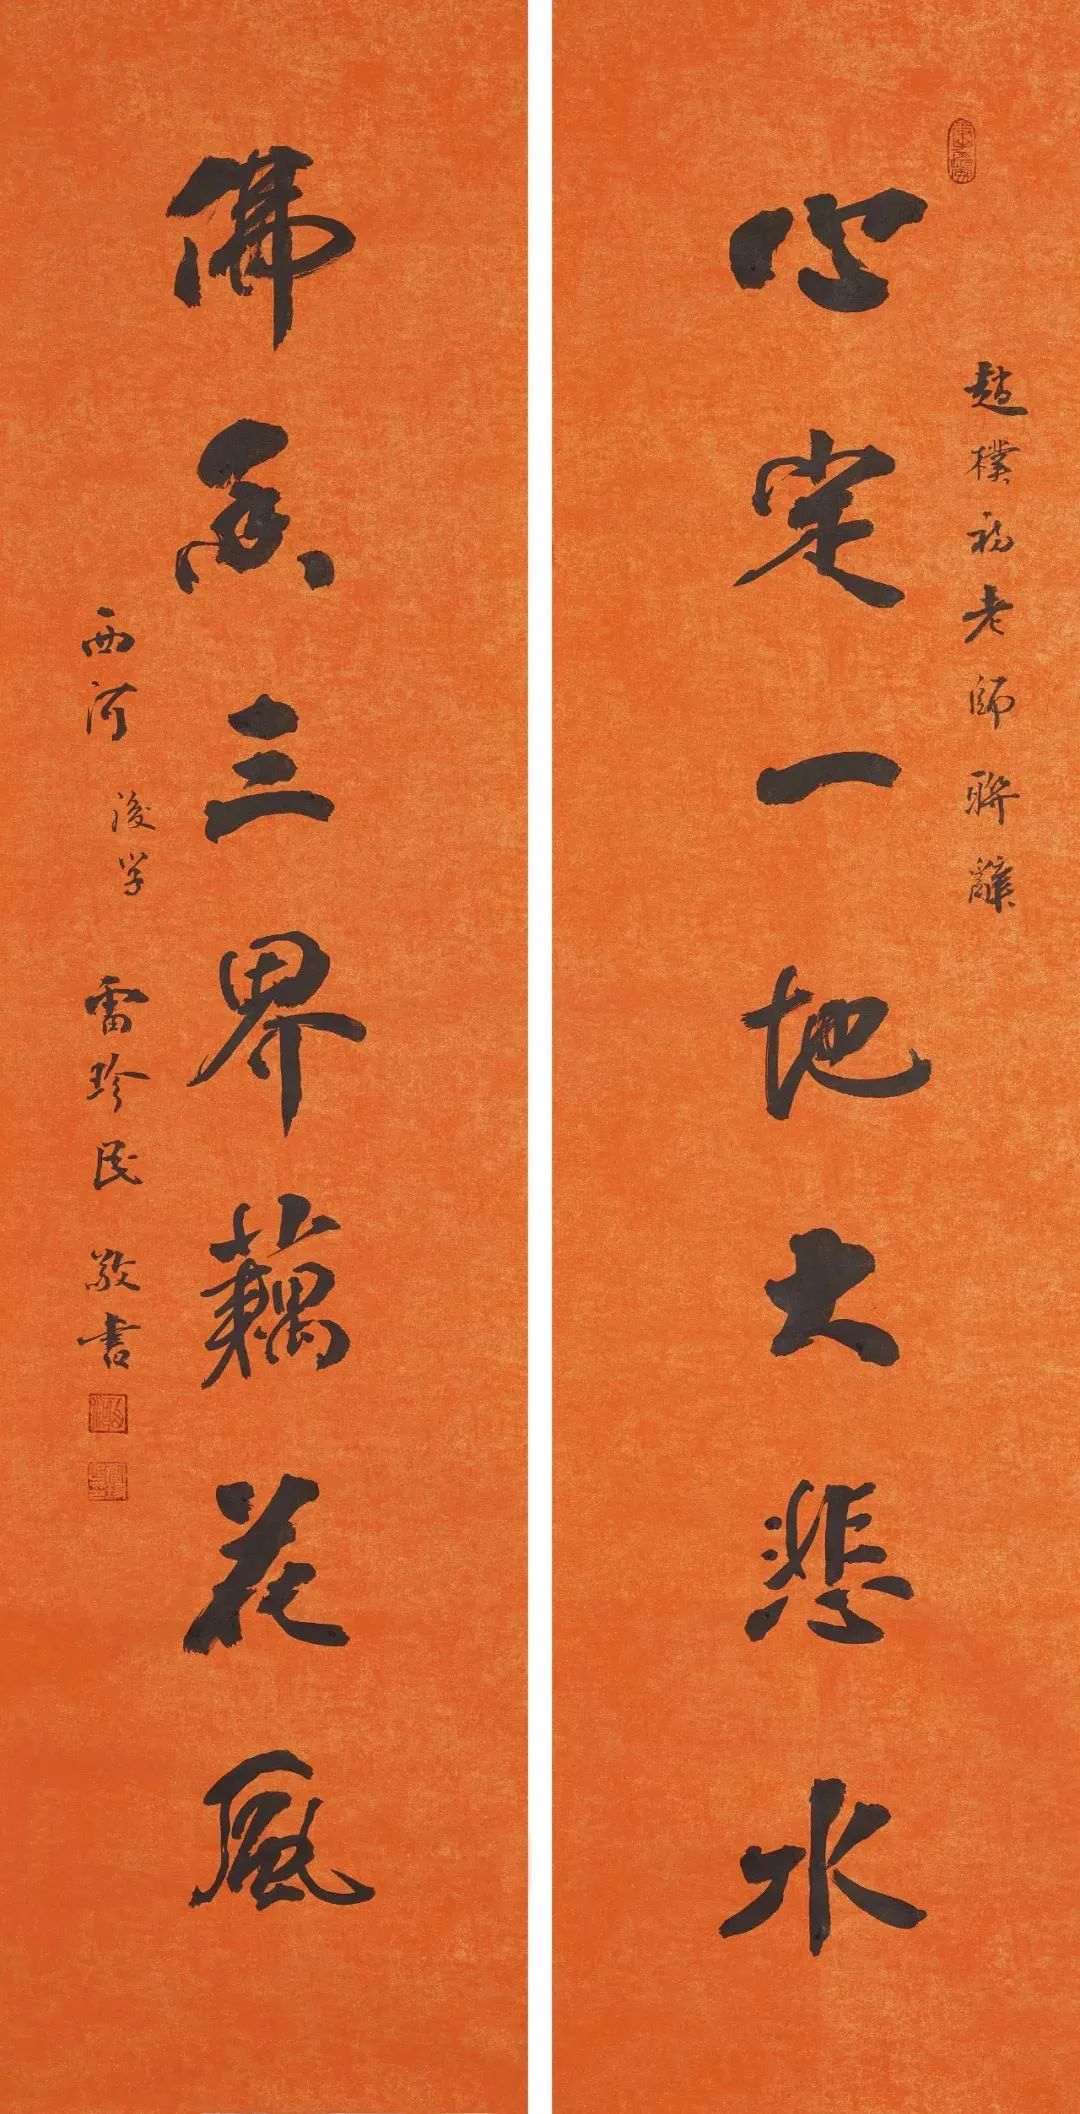 心定一地大悲水
趙樸初老師聯辭
佛香三界藕花風
西河 後学 雷珍民 敬書